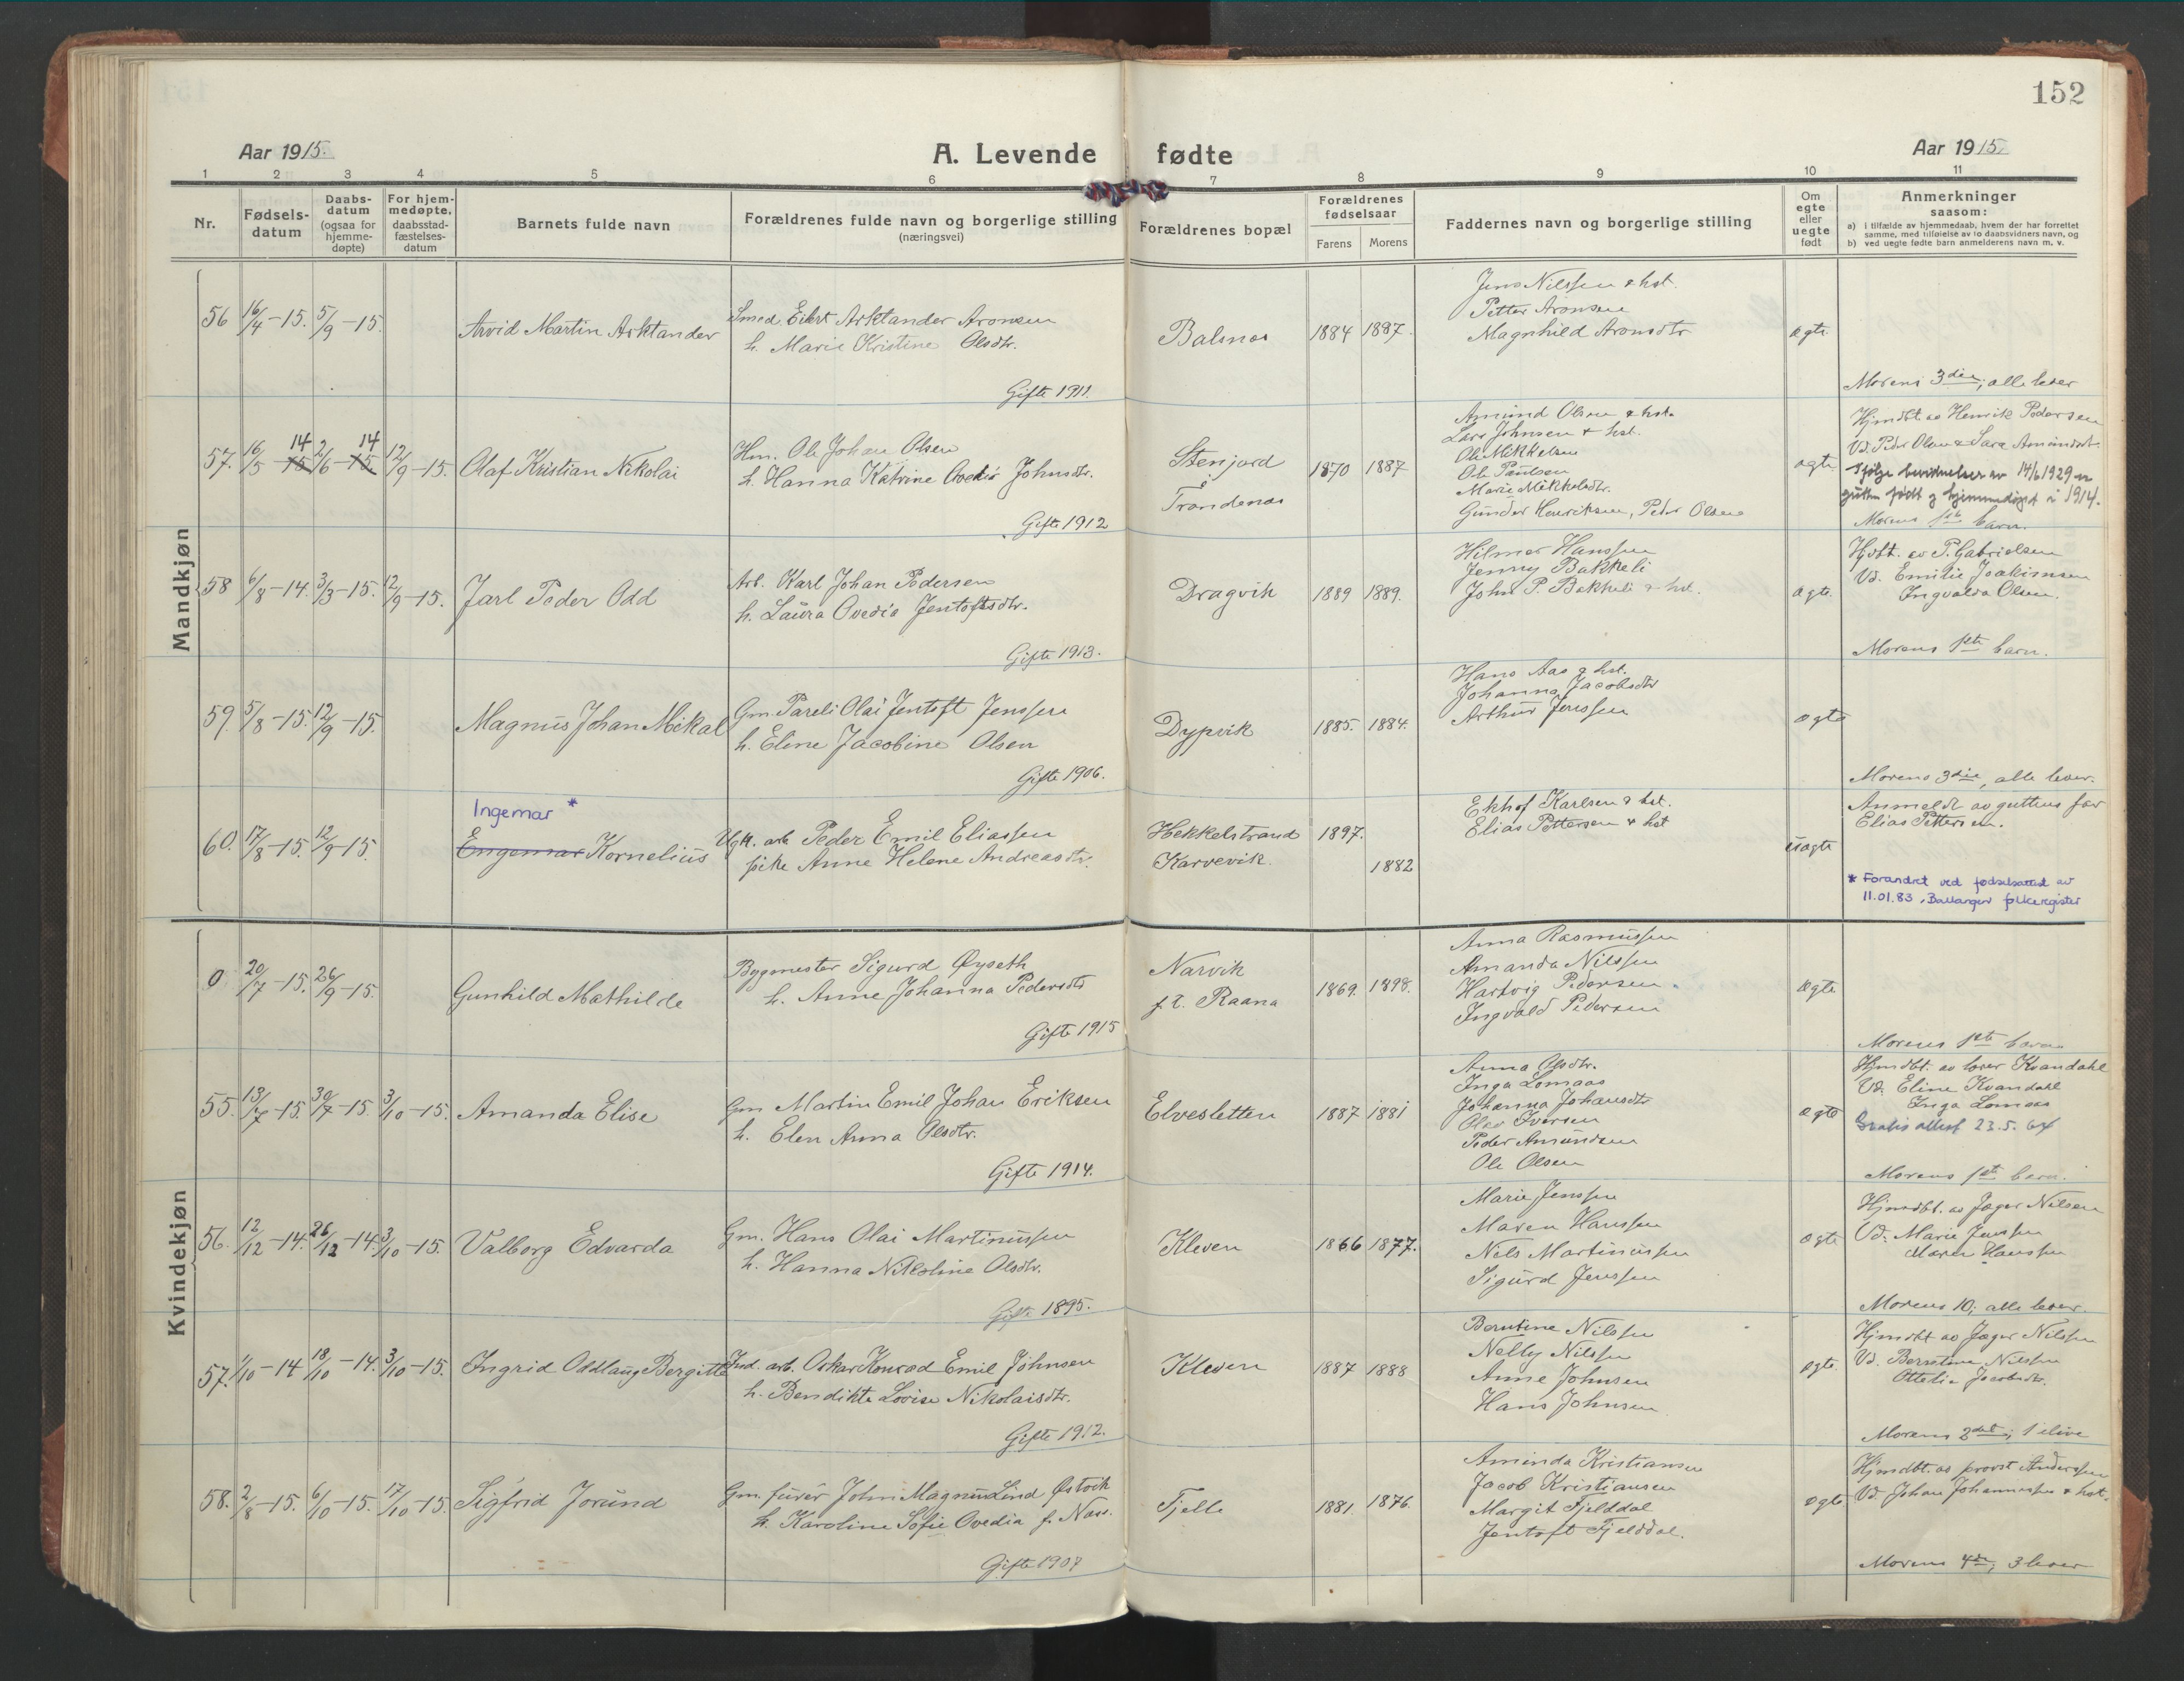 152
Aar 1915.
A. Levende fødte
Aar 1915.
1 2 3 4 5 6 7 8 9 10 11
Nr.
Fødsels-
datum
Daabs-
datum
(ogsaa for
hjemme-
døpte)
For hjem-
medøpte,
daabsstad-
fæstelses-
datum
Barnets fulde navn
Forældrenes fulde navn og borgerlige stilling
(næringsvei)
Forældrenes bopæl
Forældrenes
fødselsaar
Farens Morens
Faddernes navn og borgerlige stilling
Om
egte
eller
uegte
født
Anmerkninger
saasom:
a) i tilfælde av hjemmedaab, hvem der har forrettet
samme, med tilføielse av to daabsvidners navn, og
b) ved uegte fødte barn anmelderens navn m. v.
Mandkjøn
56 16/4-15. 5/9-15.
Arvid Martin Arktander
Smed Eilert Arktander Aronsen
h. Marie Kristine Olsdtr.
Gifte 1911.
Balsnes
1884 1887.
Jens Nilssen & hst.
Petter Aronsen
Magnhild Aronsdtr
ægte
Morens 3die, alle lever
57. 16/5-15 14 2/6-15 14 12/9-15.
Olaf Kristian Nikolai
Hm. Ole Johan Olsen
h. Hanna Katrine Ovedia Johnsdtr.
Gifte 1912
Stenjord
Trondenes
1870 1887
Amund Olsen & hst.
Lars Johnsen & hst.
Ole Mikkelsen
Ole Paulsen
Marie Mikkelsdtr.
Gunder Henriksen, Peder Olsen
ægte
Hjmdbt. av Henrik Pedersen
Vd. Peder Olsen & Sara Amundsdtr.
Ifølge bevidnelser av 14/6 1929 er
gutten født og hjemmedøpt i 1914.
Morens 1ste barn.
58 6/8-14. 3/3-15. 12/9-15.
Jarl Peder Odd
Arb. Karl Johan Pedersen
h. Laura Ovedia Jentoftsdtr.
Gifte 1913.
Dragvik
1889 1889.
Hilmar Hanssen
Jenny Bakkeli
John P. Bakkeli & hst.
ægte.
Hjdbt. av P. Gabrielsen
Vd. Emilie Joakimsen
Ingvalda Olsen.
Morens 1ste barn.
59. 5/8-15. 12/9-15.
Magnus Johan Mikal
Gm. Pareli Olai Jentoft Jenssen
h. Eline Jacobine Olsen
Gifte 1906.
Dypvik
1885. 1884.
Hans Aas & hst.
Johanna Jacobsdtr
Arthur Jenssen
ægte
Morens 3die, alle lever.
60. 17/8-15. 12/9-15.
Ingemar *
Engemar Kornelius
Ugk. arb Peder Emil Eliassen
pike Anne Helene Andreasdtr.
Hekkelstrand
Karvevik
1897.
1882
Ekhof Karlsen & hst.
Elias Pettersen & hst
uægte
Anmeldt av guttens far
Elias Pettersen.
* Forandret ved fødselsattest av
11.01.83, Ballangen folkeregister
Kvindekjøn
0 20/7-15. 26/9-15.
Gunhild Mathilde
Bygmester Sigurd Øyseth
h. Anne Johanna Pedersdtr
Gifte 1915
Narvik
f. t. Raana
1869. 1898.
Anna Rasmussen
Amanda Nilssen
Hartvig Pedersen
Ingvald Pedersen
ægte
Morens 1ste barn
55. 13/7-15. 30/7-15. 3/10-15.
Amanda Elise
Gm Martin Emil Johan Eriksen
h. Elen Anna Olsdtr.
Gifte 1914.
Elvesletten
1887 1881
Anna Olsdtr.
Inga Lomaas
Johanna Johansdtr
Olav Iversen
Peder Amundsen
Ole Olsen
ægte
Hjmdbt. av lærer Kvandahl
Vd. Eline Kvandahl
Inga Lomaas
Gratis attest 23.5.64
Morens 1ste barn.
56. 12/12-14. 26/12-14. 3/10-15.
Valborg Edvarda
Gm. Hans Olai Martinussen
h. Hanna Nikoline Olsdtr.
Gifte 1895.
Kleven
1866 1877.
Marie Jenssen
Maren Hanssen
Nils Martinussen
Sigurd Jenssen
ægte
Hjmdbt. av Jæger Nilsen
Vd. Marie Jenssen
Maren Hanssen
Morens 10; alle lever.
57. 1/10-14 18/10-14. 3/10-15.
Ingrid Oddlaug Bergitte
Ind. arb. Oskar Konrad Emil Johnsen
h. Bendikte Lovise Nikolaisdtr.
Gifte 1912.
Kleven
1887 1888
Berntine Nilssen
Nelly Nilssen
Anne Johnsen
Hans Johnsen
ægte.
Hjmdbt av Jæger Nilssen
Vd. Berntine Nilssen
Ottelie Jacobsdtr.
Morens 2det; 1 ilive
58. 2/8-15. 6/10-15. 17/10-15.
Sigfrid Jorund
Gm. furér John Magnus Lind Østvik
h. Karoline Sofie Ovedia f. Næss.
Gifte 1907
Fjelle
1881. 1876.
Aminda Kristiansen
Jacob Kristiansen
Margit Fjelddal
Jentoft Fjelddal.
ægte
Hjmdbt. av provst Anderssen
Vd. Johan Johannessen & hst.
Morens 4de; 3 lever